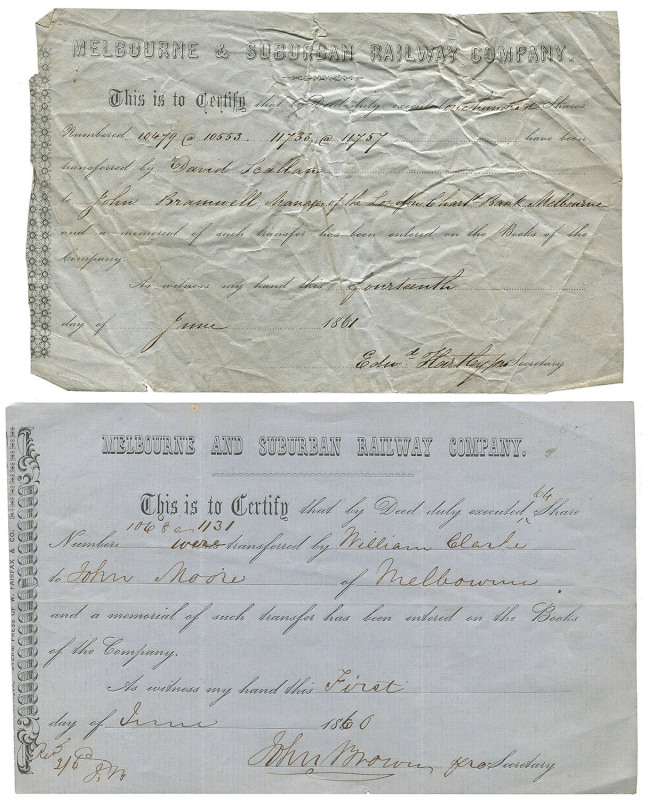 MELBOURNE & SUBURBAN RAILWAY COMPANY.
This is to Certify that by Deed duly executed one hundred Shares
Numbered 10479 @ 10553. 11733 @ 11757 have been
transferred by David Scallan
to John Bramwell Manager of the Lon. of Chartd Bank Melbourne
and a memorial of such transfer has been entered on the Books of the
Company.
As witness my hand this fourteenth
day of June 1861
Edwd Hartley pro Secretary
MELBOURNE AND SUBURBAN RAILWAY COMPANY.
64
This is to Certify that by Deed duly executed Share
1068 @ 1131
Number were transferred by William Clarke
to John Moore of Melbourne
and a memorial of such transfer has been entered on the Books
of the Company.
As witness my hand this First
day of June 1860
John Brown pro Secretary
2/6
J.M.
FAIRFAX & CO.